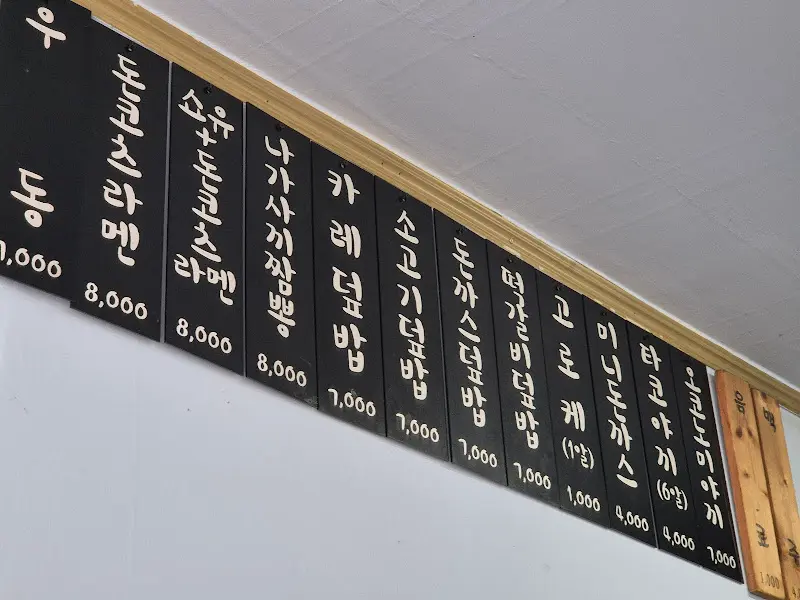 우동
7,000
돈코츠라멘
8,000
쇼유+돈코츠라멘
8,000
나가사끼짬뽕
8,000
카레덮밥
7,000
소고기덮밥
7,000
돈까스덮밥
7,000
떡갈비덮밥
7,000
고로케(1알)
1,000
미니돈까스
4,000
타코야끼(6알)
4,000
오코노미야끼
7,000
음료
1,000